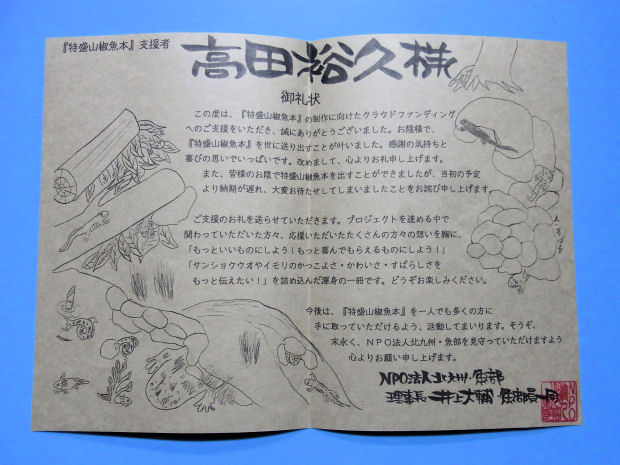 『特盛山椒魚本』支援者
高田裕久様
御礼状
この度は、『特盛山椒魚本』の制作に向けたクラウドファンディング
へのご支援をいただき、誠にありがとうございました。お陰様で、
『特盛山椒魚本』を世に送り出すことが叶いました。感謝の気持ちと
喜びの思いでいっぱいです。改めまして、心よりお礼申し上げます。
また、皆様のお陰で特盛山椒魚本を出すことができましたが、当初の予定
より納期が遅れ、大変お待たせしてしまいましたことをお詫び申し上げます。
ご支援のお礼を送らせていただきます。プロジェクトを進める中で
関わっていただいた方々、応援いただいたたくさんの方々の想いを胸に、
「もっといいものにしよう！もっと喜んでもらえるものにしよう！」
「サンショウウオやイモリのかっこよさ・かわいさ・すばらしさを
もっと伝えたい！」を詰め込んだ渾身の一冊です。どうぞお楽しみください。
今後は、『特盛山椒魚本』を一人でも多くの方に
手に取っていただけるよう、活動してまいります。そうぞ、
末永く、NPO法人北九州・魚部を見守っていただけますよう
心よりお願い申し上げます。
NPO法人北九州・魚部
理事長 井上大輔・魚部員一同